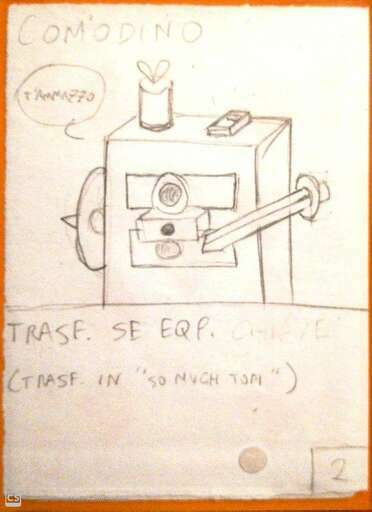 COMODINO
T'AMMAZZO
TRASF. SE EQP. CHIAVE
(TRASF. IN "SO MUCH TOM")
2
CS